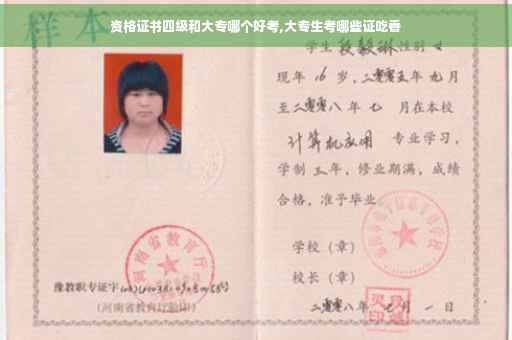 资格证书四级和大专哪个好考,大专生考哪些证吃香
样本
学生 段毅琳 性别 女
现年 16 岁,二零零五年 九月
至二零零八年 七 月在本校
计算机应用 专业学习,
学制 三年,修业期满,成绩
合格,准予毕业。
学校(章)
校长(章)
二零零八年 七月 一日
河南省教育厅
豫教职专证字
(河南省教育厅验印)